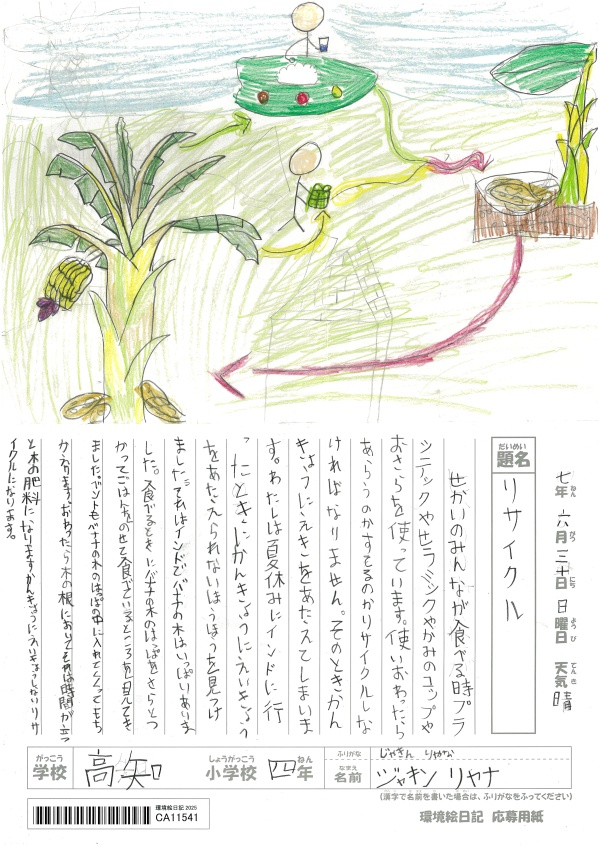 七年 六月 三十日 日曜日 天気 晴
ねん がつ にち ようび てんき
だいめい
題名 リサイクル
せかいのみんなが食べる時プラ
シティックやセラミックやかみのコップや
おさらを使っています。使いおわったら
あらうのかすてるのかリサイクルしな
ければなりません。そのときかん
きょうにえいきをあたえてしまいま
す。わたしは夏休みにインドに行
ったときにかんきょうにえいきょう
をあたえられないほうほうを見つけ
ました。それはインドでバナナの木はいっぱいありま
した。食べるときにバナナの木のはっぱをさらとつ
かってごはんをのせて食べているところを見てき
ました。ベントもバナナの木のはっぱの中に入れてくくってもち
かえります。おわったら木の根においてそれは時間が立つ
と木の肥料になりますかんきょうにえいきょうしないリサ
イクルになります。
がっこう しょうがっこう ねん ふりがな じゃきん りゃな
学校 高知 小学校 四年 なまえ 名前 ジャキン リヤナ
(漢字で名前を書いた場合は、ふりがなをふってください)
環境絵日記 2025
CA11541
環境絵日記 応募用紙